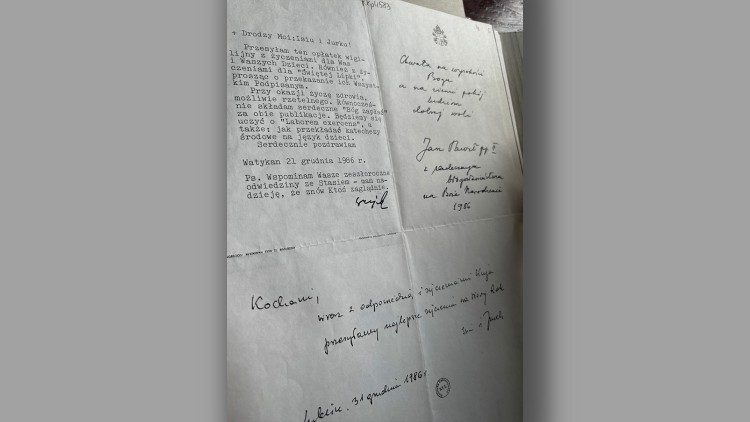 KKpl/583
+ Drodzy Moi: Isiu i Jurku!
Przesyłam ten opłatek wigi-
lijny z życzeniami dla Was
i Waszych Dzieci. Również z ży-
czeniami dla "Świętej Lipki",
prosząc o przekazanie ich Wszyst-
kim Podpisanym.
Przy okazji życzę zdrowia,
możliwie rzetelnego. Równocześ-
nie składam serdeczne "Bóg zapłać"
za obie publikacje. Będziemy się
uczyć o "Laborem exercens", a
także: jak przekładać katechezy
środowe na język dzieci.
Serdecznie pozdrawiam
Watykan 21 grudnia 1986 r.
Ps. Wspominam Wasze zeszłoroczne
odwiedziny ze Stasiem - mam na-
dzieję, że znów Ktoś zaglądnie.
Chwała na wysokości
Boga
a na ziemi pokój
ludziom
dobrej woli
Jan Paweł pp II
z serdecznym
błogosławieństwem
na Boże Narodzenie
1986
Kochani,
wraz z odpowiedzią i życzeniami Wuja
przesyłamy najlepsze życzenia na Nowy Rok
Lublin, 31 grudnia 1986 r.